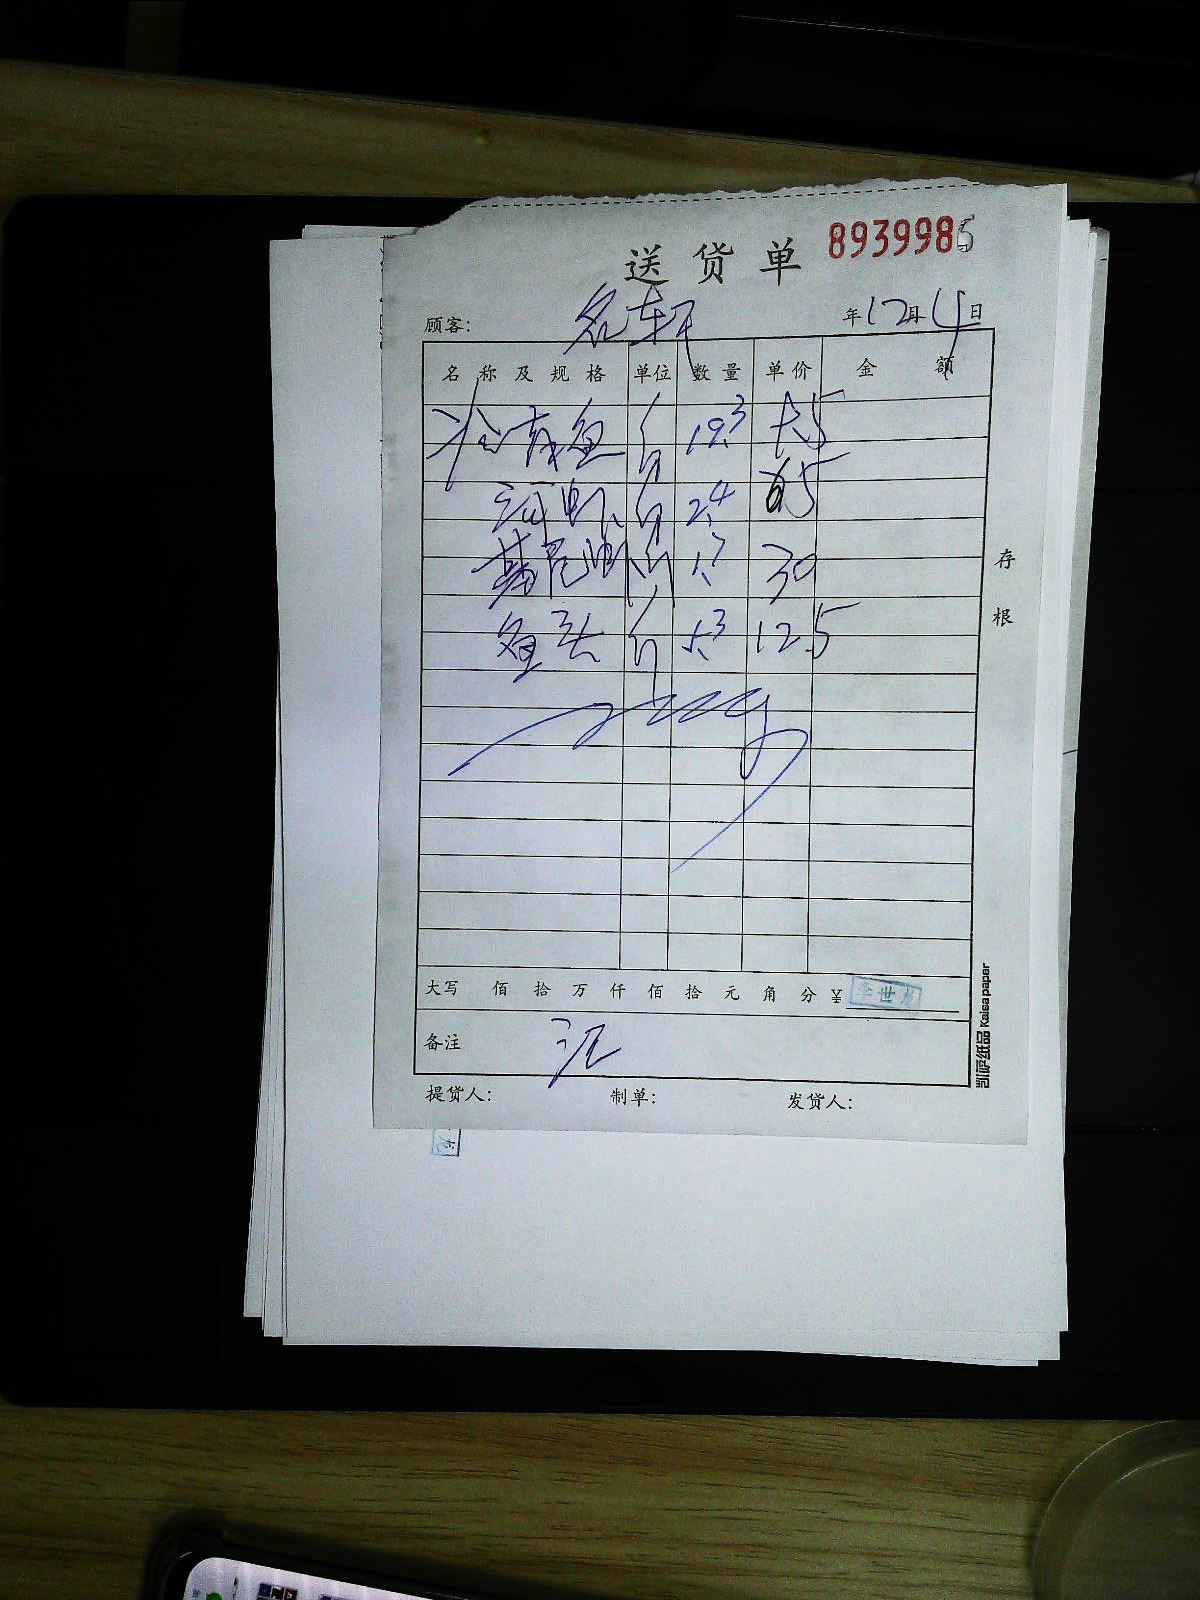 送货单 8939985
顾客: 名轩 年12月14日
名称及规格 单位 数量 单价 金额
鱼 斤 19.3
河虾 斤 2.4 65
基尾虾 斤 1.7 30
鱼头 斤 5.3 12.5
存根
大写 佰 拾 万 仟 佰 拾 元 角 分 ¥ 李世龙
备注
提货人: 制单: 发货人:
凯萨纸品 Kaisa paper
龙